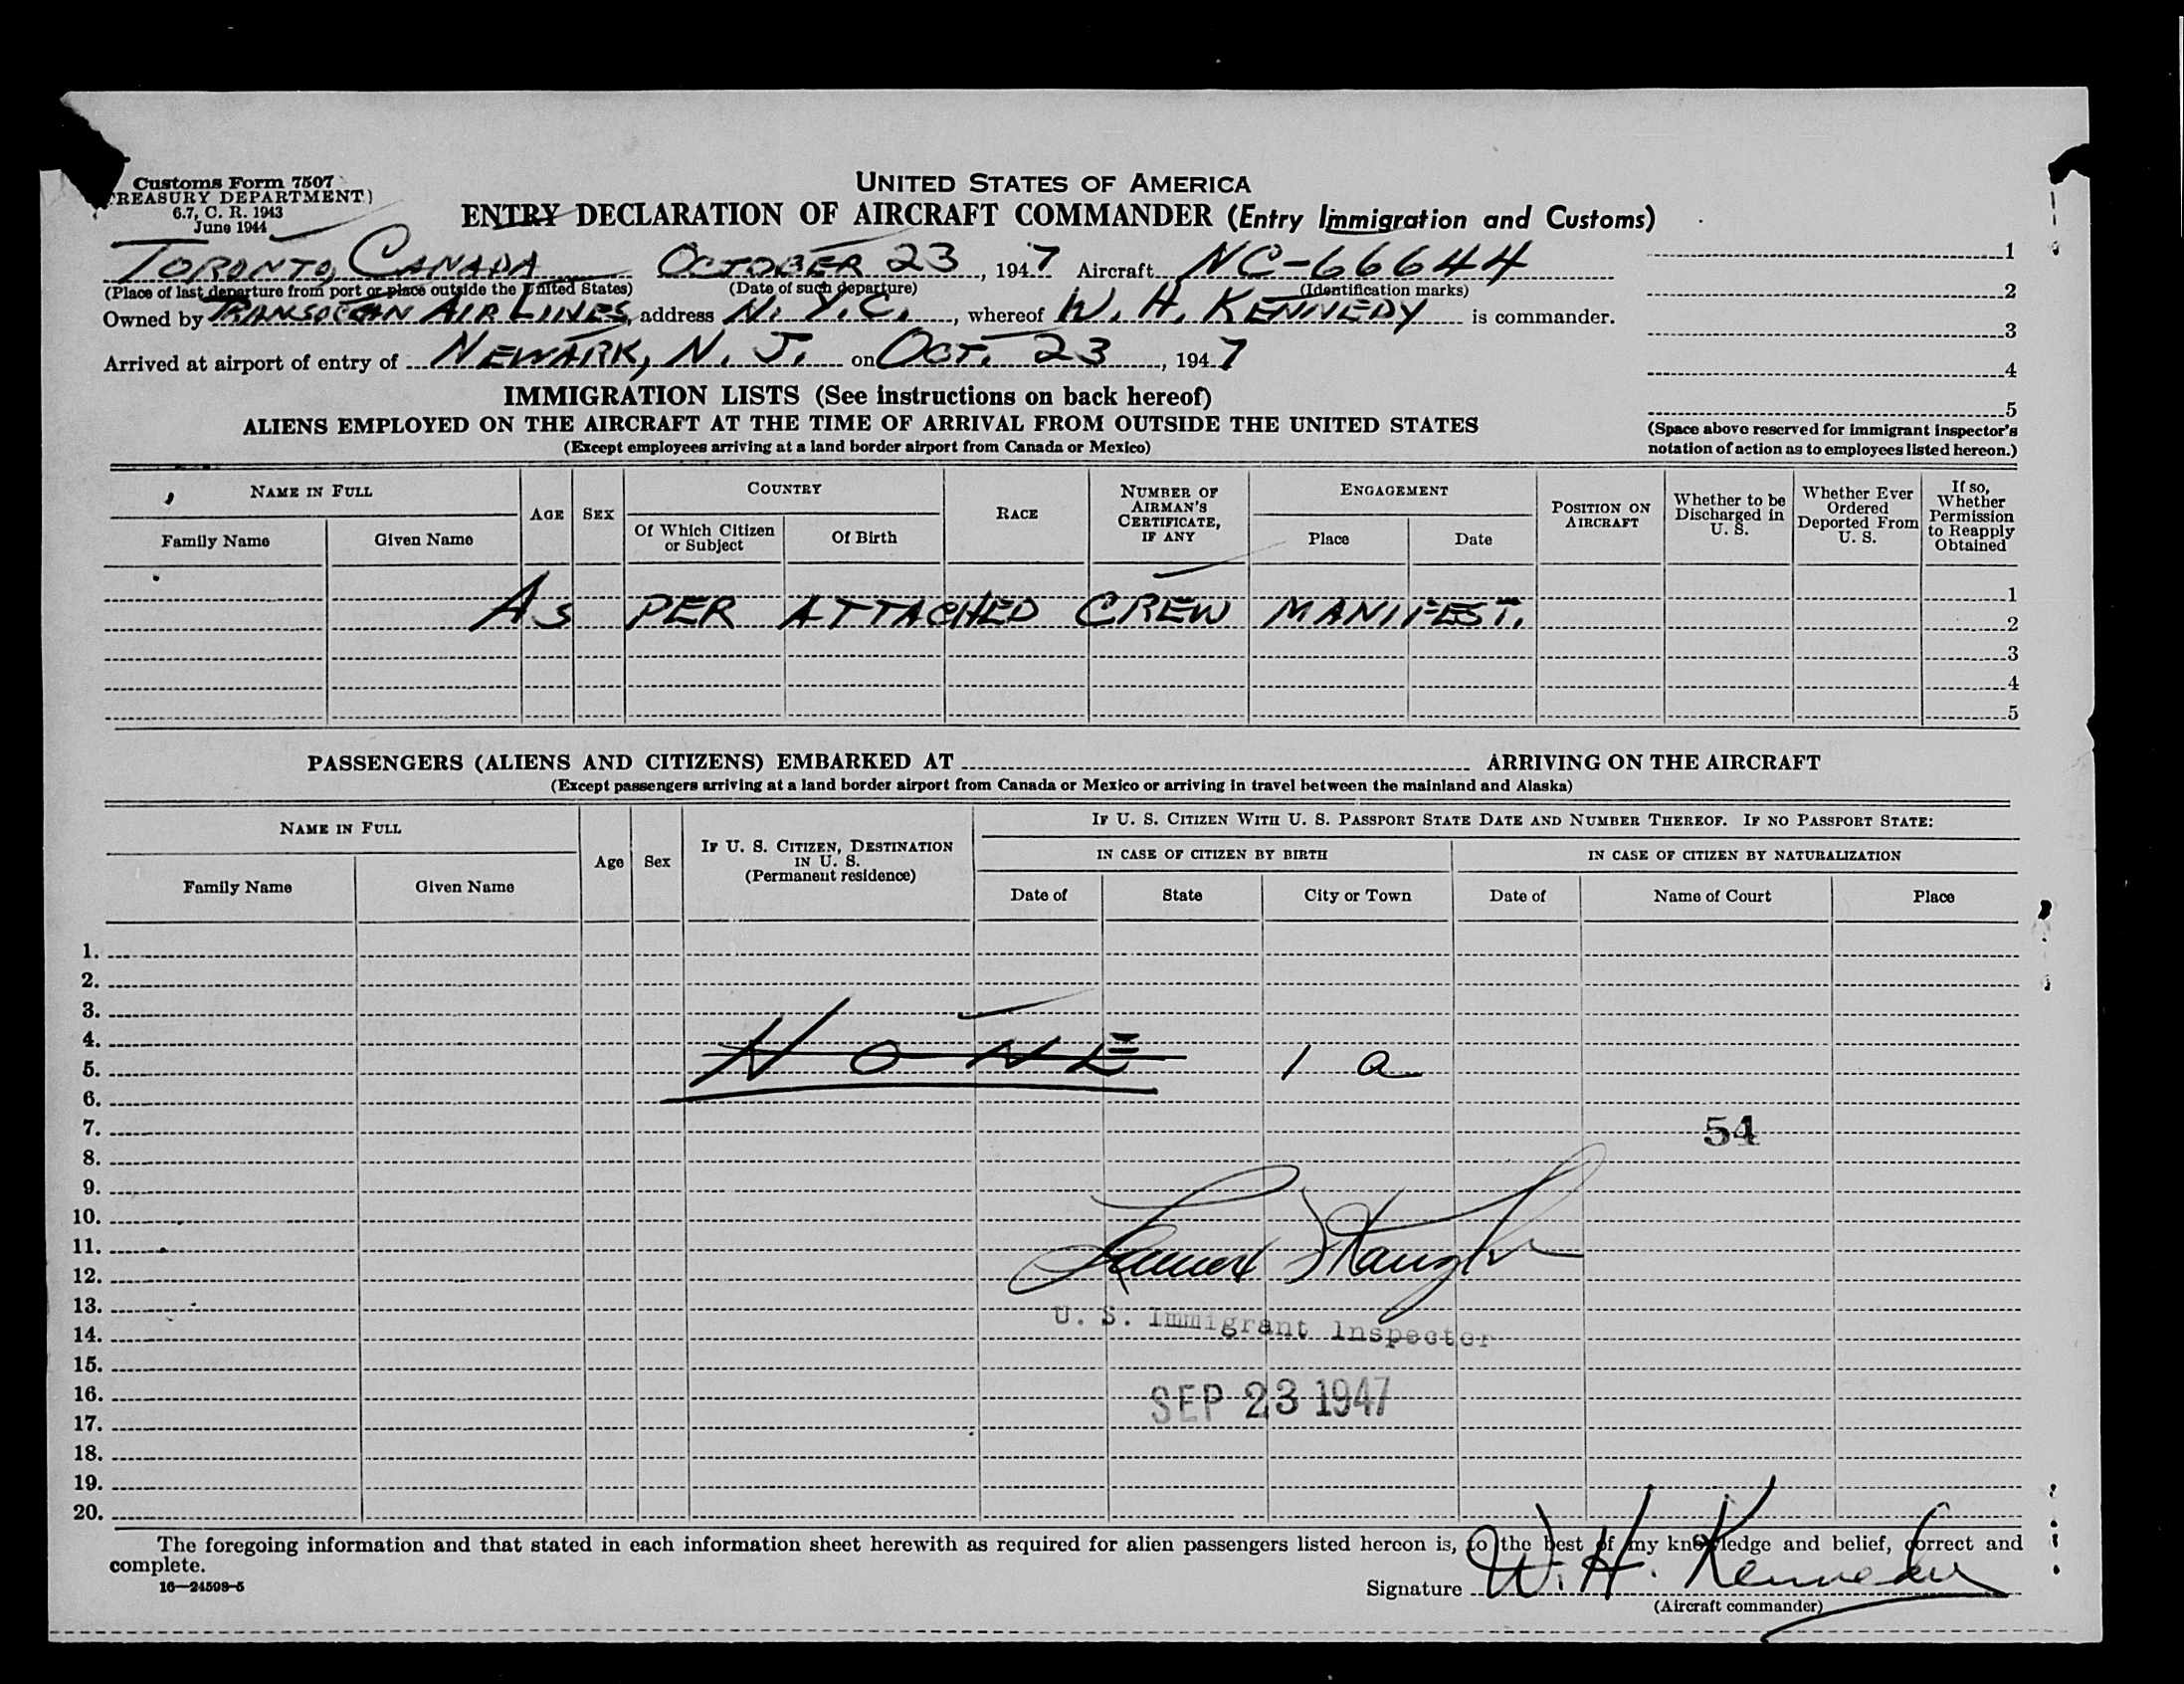 Customs Form 7507
TREASURY DEPARTMENT)
6.7, C. R. 1943
June 1944
UNITED STATES OF AMERICA
ENTRY DECLARATION OF AIRCRAFT COMMANDER (Entry Immigration and Customs)
TORONTO, CANADA OCTOBER 23, 1947 Aircraft NC-66644
(Place of last departure from port or place outside the United States) (Date of such departure) (Identification marks)
Owned by TRANSOCEAN AIR LINES, address N. Y. C., whereof W. H. KENNEDY is commander.
Arrived at airport of entry of NEWARK, N. J. on OCT. 23, 1947
1
2
3
4
5
(Space above reserved for immigrant inspector's
notation of action as to employees listed hereon.)
IMMIGRATION LISTS (See instructions on back hereof)
ALIENS EMPLOYED ON THE AIRCRAFT AT THE TIME OF ARRIVAL FROM OUTSIDE THE UNITED STATES
(Except employees arriving at a land border airport from Canada or Mexico)
NAME IN FULL
Family Name
Given Name
AGE
SEX
COUNTRY
Of Which Citizen
or Subject
Of Birth
RACE
NUMBER OF
AIRMAN'S
CERTIFICATE,
IF ANY
ENGAGEMENT
Place
Date
POSITION ON
AIRCRAFT
Whether to be
Discharged in
U. S.
Whether Ever
Ordered
Deported From
U. S.
If so,
Whether
Permission
to Reapply
Obtained
1
AS PER ATTACHED CREW MANIFEST. 2
3
4
5
PASSENGERS (ALIENS AND CITIZENS) EMBARKED AT ARRIVING ON THE AIRCRAFT
(Except passengers arriving at a land border airport from Canada or Mexico or arriving in travel between the mainland and Alaska)
NAME IN FULL
Family Name
Given Name
Age
Sex
IF U. S. CITIZEN, DESTINATION
IN U. S.
(Permanent residence)
IF U. S. CITIZEN WITH U. S. PASSPORT STATE DATE AND NUMBER THEREOF. IF NO PASSPORT STATE:
IN CASE OF CITIZEN BY BIRTH
Date of
State
City or Town
IN CASE OF CITIZEN BY NATURALIZATION
Date of
Name of Court
Place
1.
2.
3.
4.
5. NONE 1 a
6.
7. 54
8.
9.
10.
11.
12.
13.
U. S. Immigrant Inspector
14.
15.
16. SEP 23 1947
17.
18.
19.
20.
The foregoing information and that stated in each information sheet herewith as required for alien passengers listed hereon is, to the best of my knowledge and belief, correct and
complete.
16—24508-5
Signature W. H. Kennedy
(Aircraft commander)